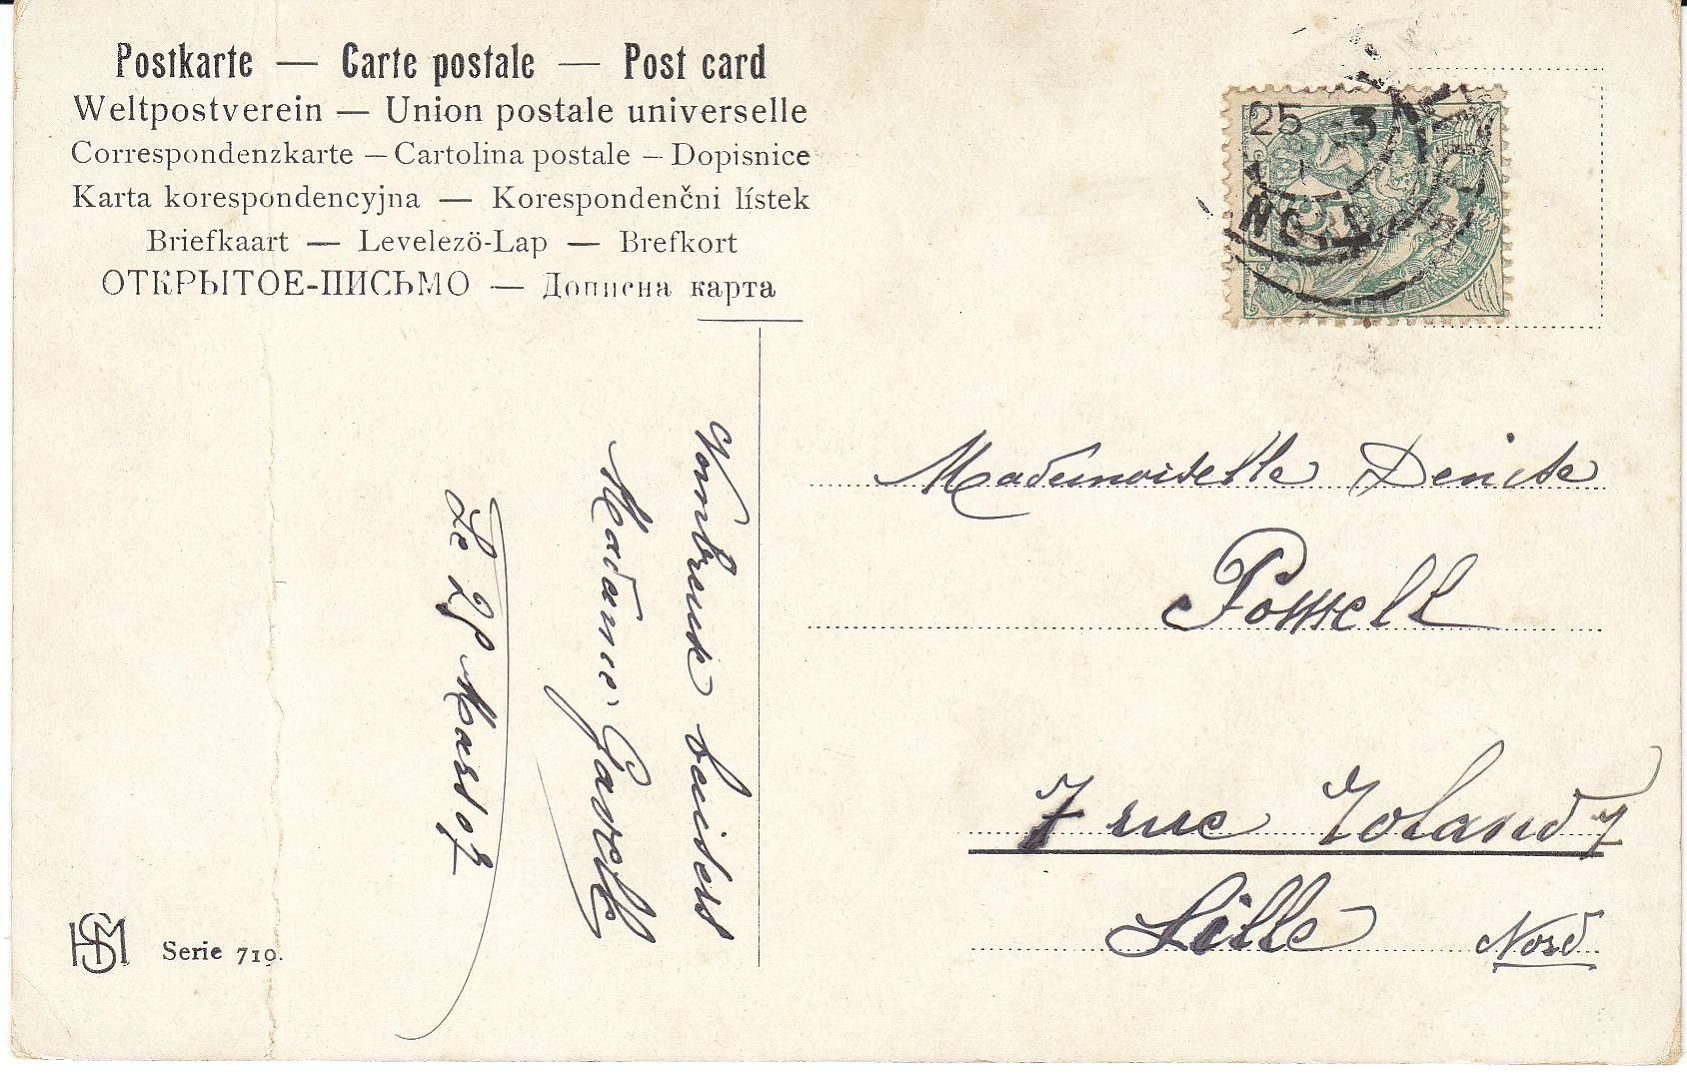 Postkarte — Carte postale — Post card
Weltpostverein — Union postale universelle
Correspondenzkarte — Cartolina postale — Dopisnice
Karta korespondencyjna — Korespondenčni lístek
Briefkaart — Levelezö-Lap — Brefkort
ОТКРЫТОЕ-ПИСЬМО — Дописна карта
25 3
Nombreux baisers
Madame
Le Mars 07
Mademoiselle Denise
Powell
7 rue Yoland 7
Lille Nord
HSM Serie 719.